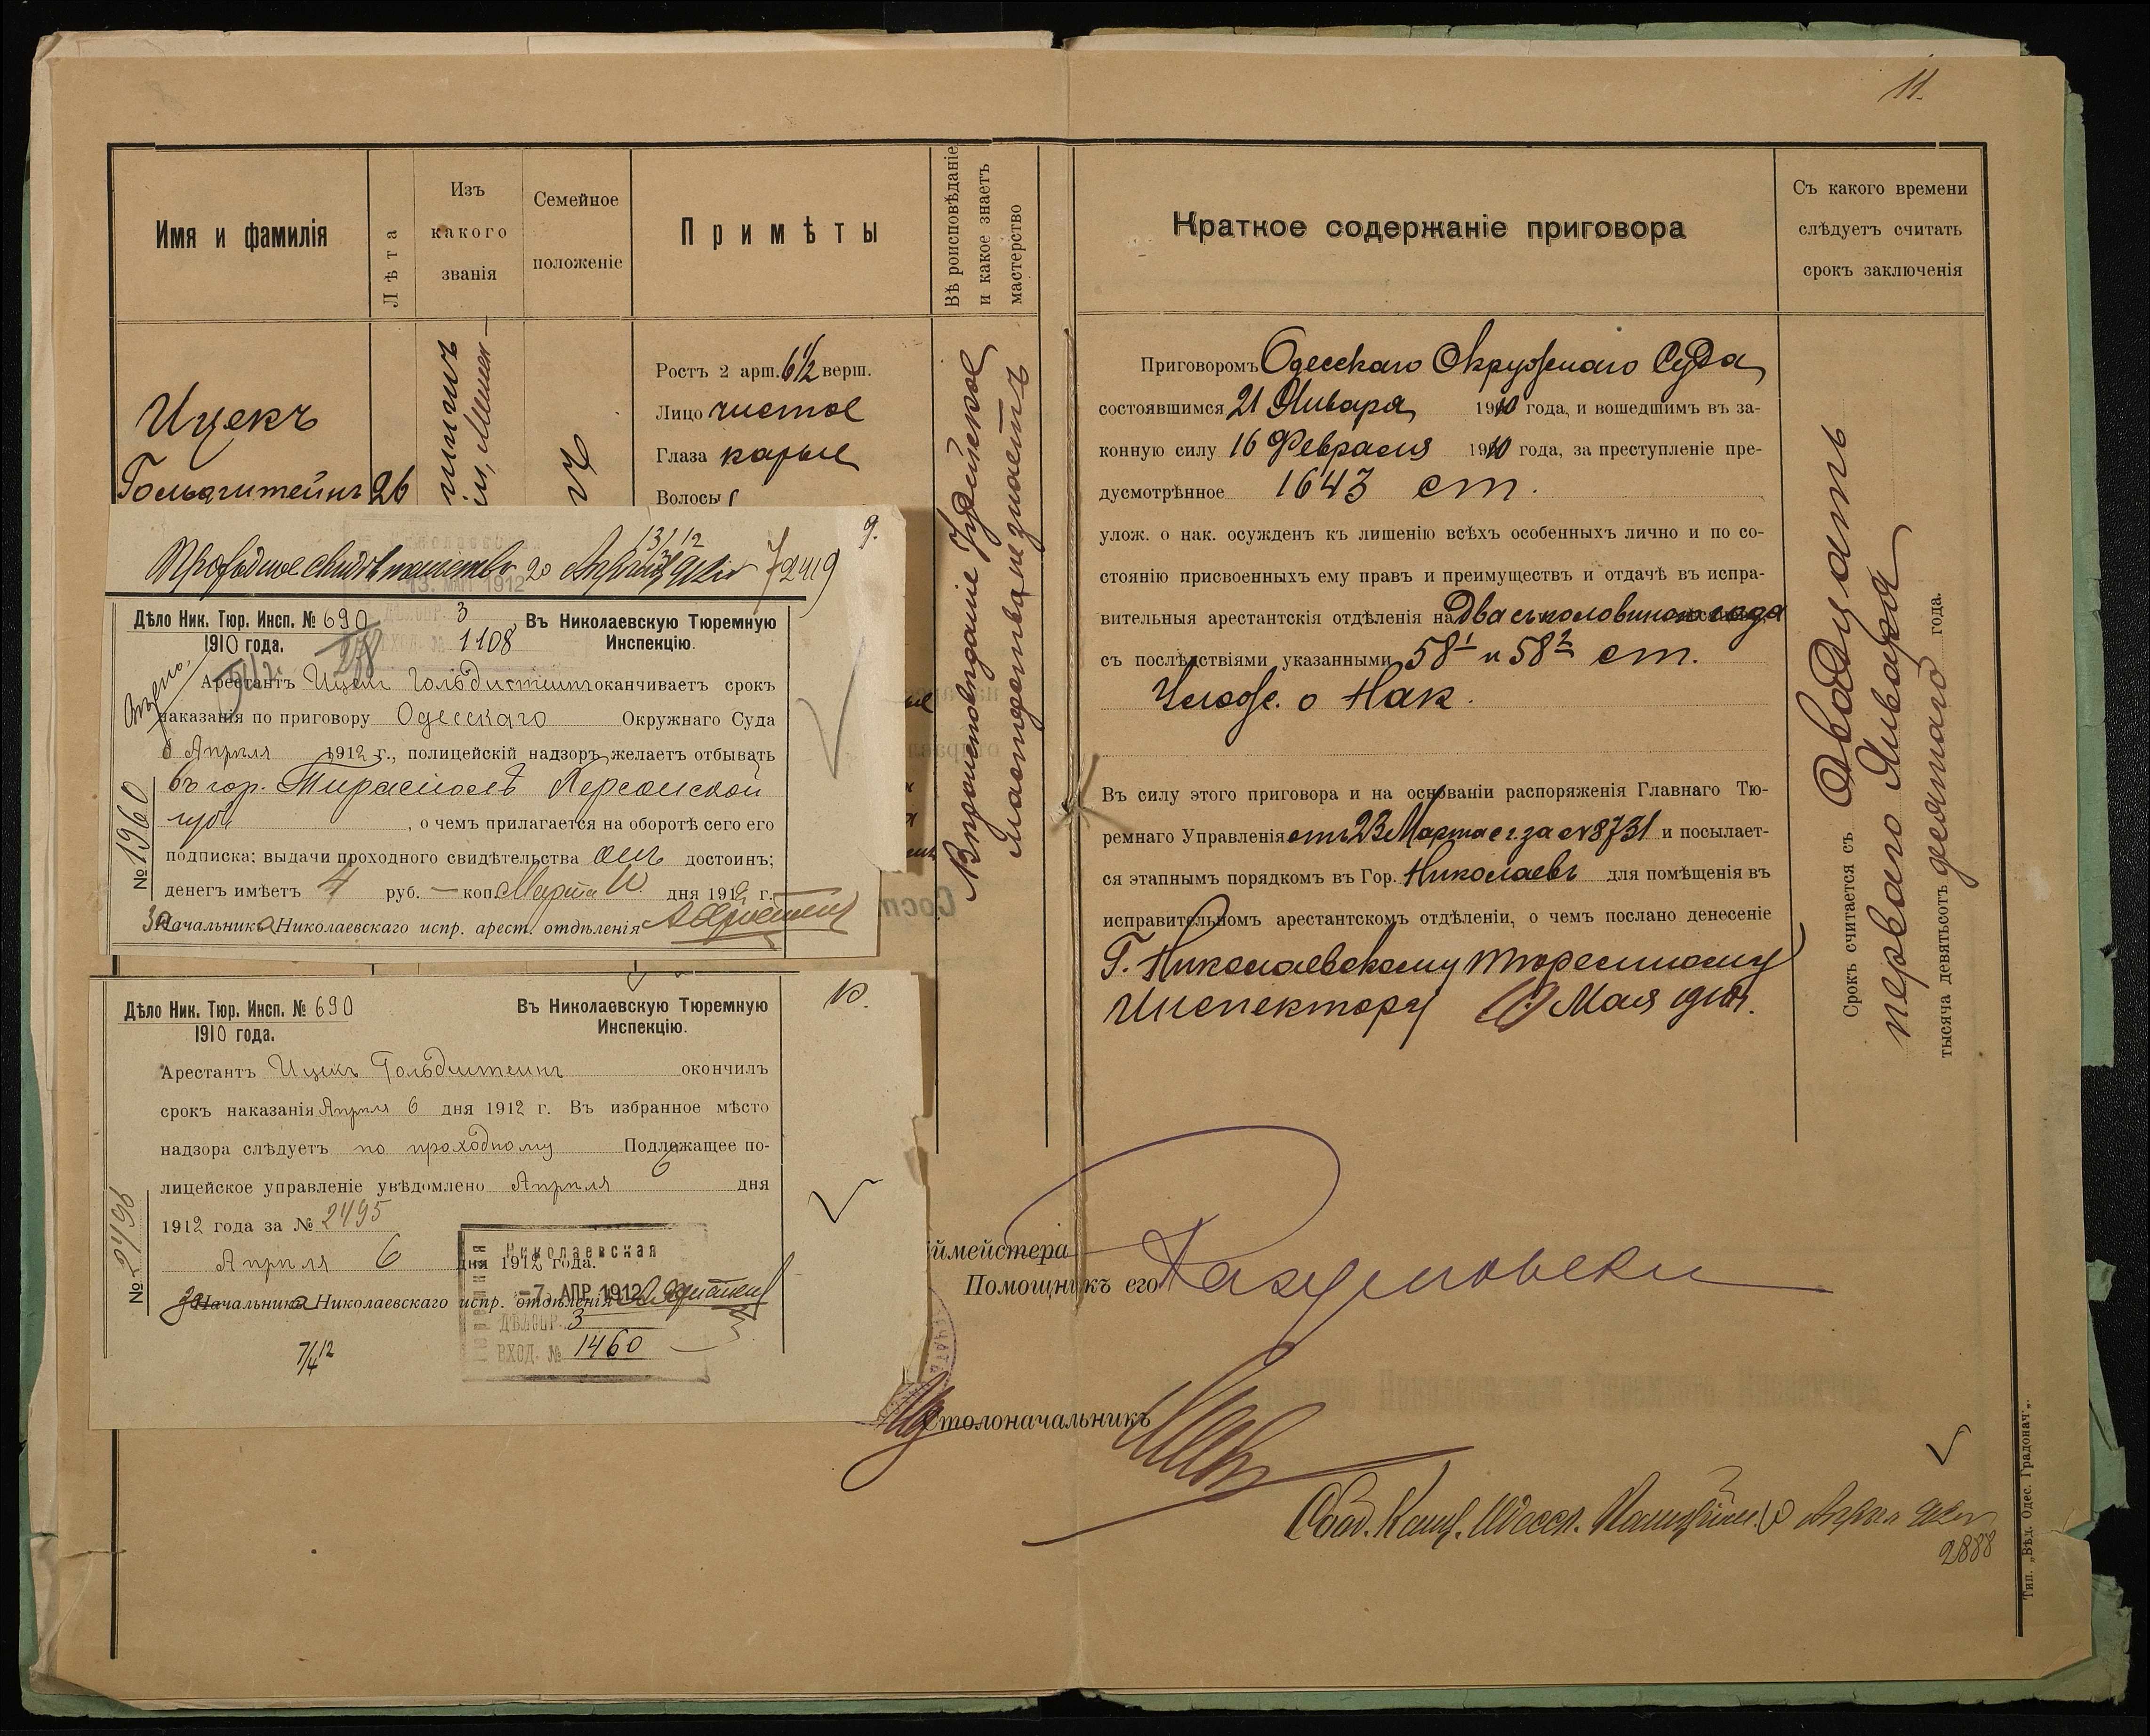 11.
Имя и фамилія
Лѣта
Изъ
какого
званія
Семейное
положеніе
Примѣты
Вѣроисповѣданіе
и какое знаетъ
мастерство
Ицекъ
Гольдштейнъ
26
Ростъ 2 арш. 6 1/2 верш.
Лицо чистое
Глаза карые
Волосы
Вѣроисповѣданіе Іудейское
мастерства не знаетъ
9.
Проходное свидѣтельство 20
13. МАР 1912
Дѣло Ник. Тюр. Инсп. № 690
1910 года.
3
ВХОД. № 1108
Въ Николаевскую Тюремную
Инспекцію.
Арестантъ Ицекъ Гольдштейнъ оканчиваетъ срокъ
наказанія по приговору Одесскаго Окружнаго Суда
6 Апрѣля 1912 г., полицейскій надзоръ желаетъ отбывать
въ гор. Тирасполѣ Херсонской
губ. , о чемъ прилагается на оборотѣ сего его
подписка; выдачи проходного свидѣтельства онъ достоинъ;
денегъ имѣетъ 4 руб. — коп. Марта 10 дня 1912 г.
За Начальника Николаевскаго испр. арест. отдѣленія
№ 1960
10.
Дѣло Ник. Тюр. Инсп. № 690
1910 года.
Въ Николаевскую Тюремную
Инспекцію.
Арестантъ Ицекъ Гольдштейнъ окончилъ
срокъ наказанія Апрѣля 6 дня 1912 г. Въ избранное мѣсто
надзора слѣдуетъ по проходному Подлежащее по-
лицейское управленіе увѣдомлено Апрѣля 6 дня
1912 года за № 2495
Апрѣля 6 дня 1912 года.
За Начальника Николаевскаго испр. отдѣленія
№ 2496
Николаевская
-7. АПР. 1912
3
ВХОД. № 1460
7/4 12
Краткое содержаніе приговора
Съ какого времени
слѣдуетъ считать
срокъ заключенія
Приговоромъ Одесскаго Окружнаго Суда
состоявшимся 21 Января 1910 года, и вошедшимъ въ за-
конную силу 16 Февраля 1910 года, за преступленіе пре-
дусмотрѣнное 1643 ст.
улож. о нак. осужденъ къ лишенію всѣхъ особенныхъ лично и по со-
стоянію присвоенныхъ ему правъ и преимуществъ и отдачѣ въ испра-
вительныя арестантскія отдѣленія на Два съ половиною года
съ послѣдствіями указанными 58¹ и 58² ст.
Улож. о Нак.
Въ силу этого приговора и на основаніи распоряженія Главнаго Тю-
ремнаго Управленія отъ 23 Марта с.г. за № 8731 и посылает-
ся этапнымъ порядкомъ въ Гор. Николаевъ для помѣщенія въ
исправительномъ арестантскомъ отдѣленіи, о чемъ послано денесеніе
Г. Николаевскому тюремному
Инспектору Мая 1910 г.
Срокъ считается съ Двадцать
перваго Января
тысяча девятьсотъ десятаго года.
ймейстера
Помощникъ его
толоначальникъ
2888
Тип. „Вѣд. Одес. Градонач“.